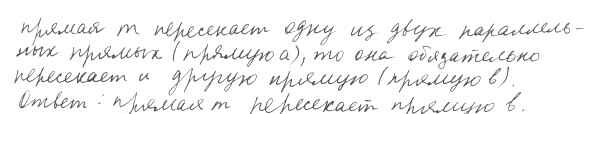 прямая m пересекает одну из двух параллель-
ных прямых (прямую a), то она обязательно
пересекает и другую прямую (прямую b).
Ответ: прямая m пересекает прямую b.